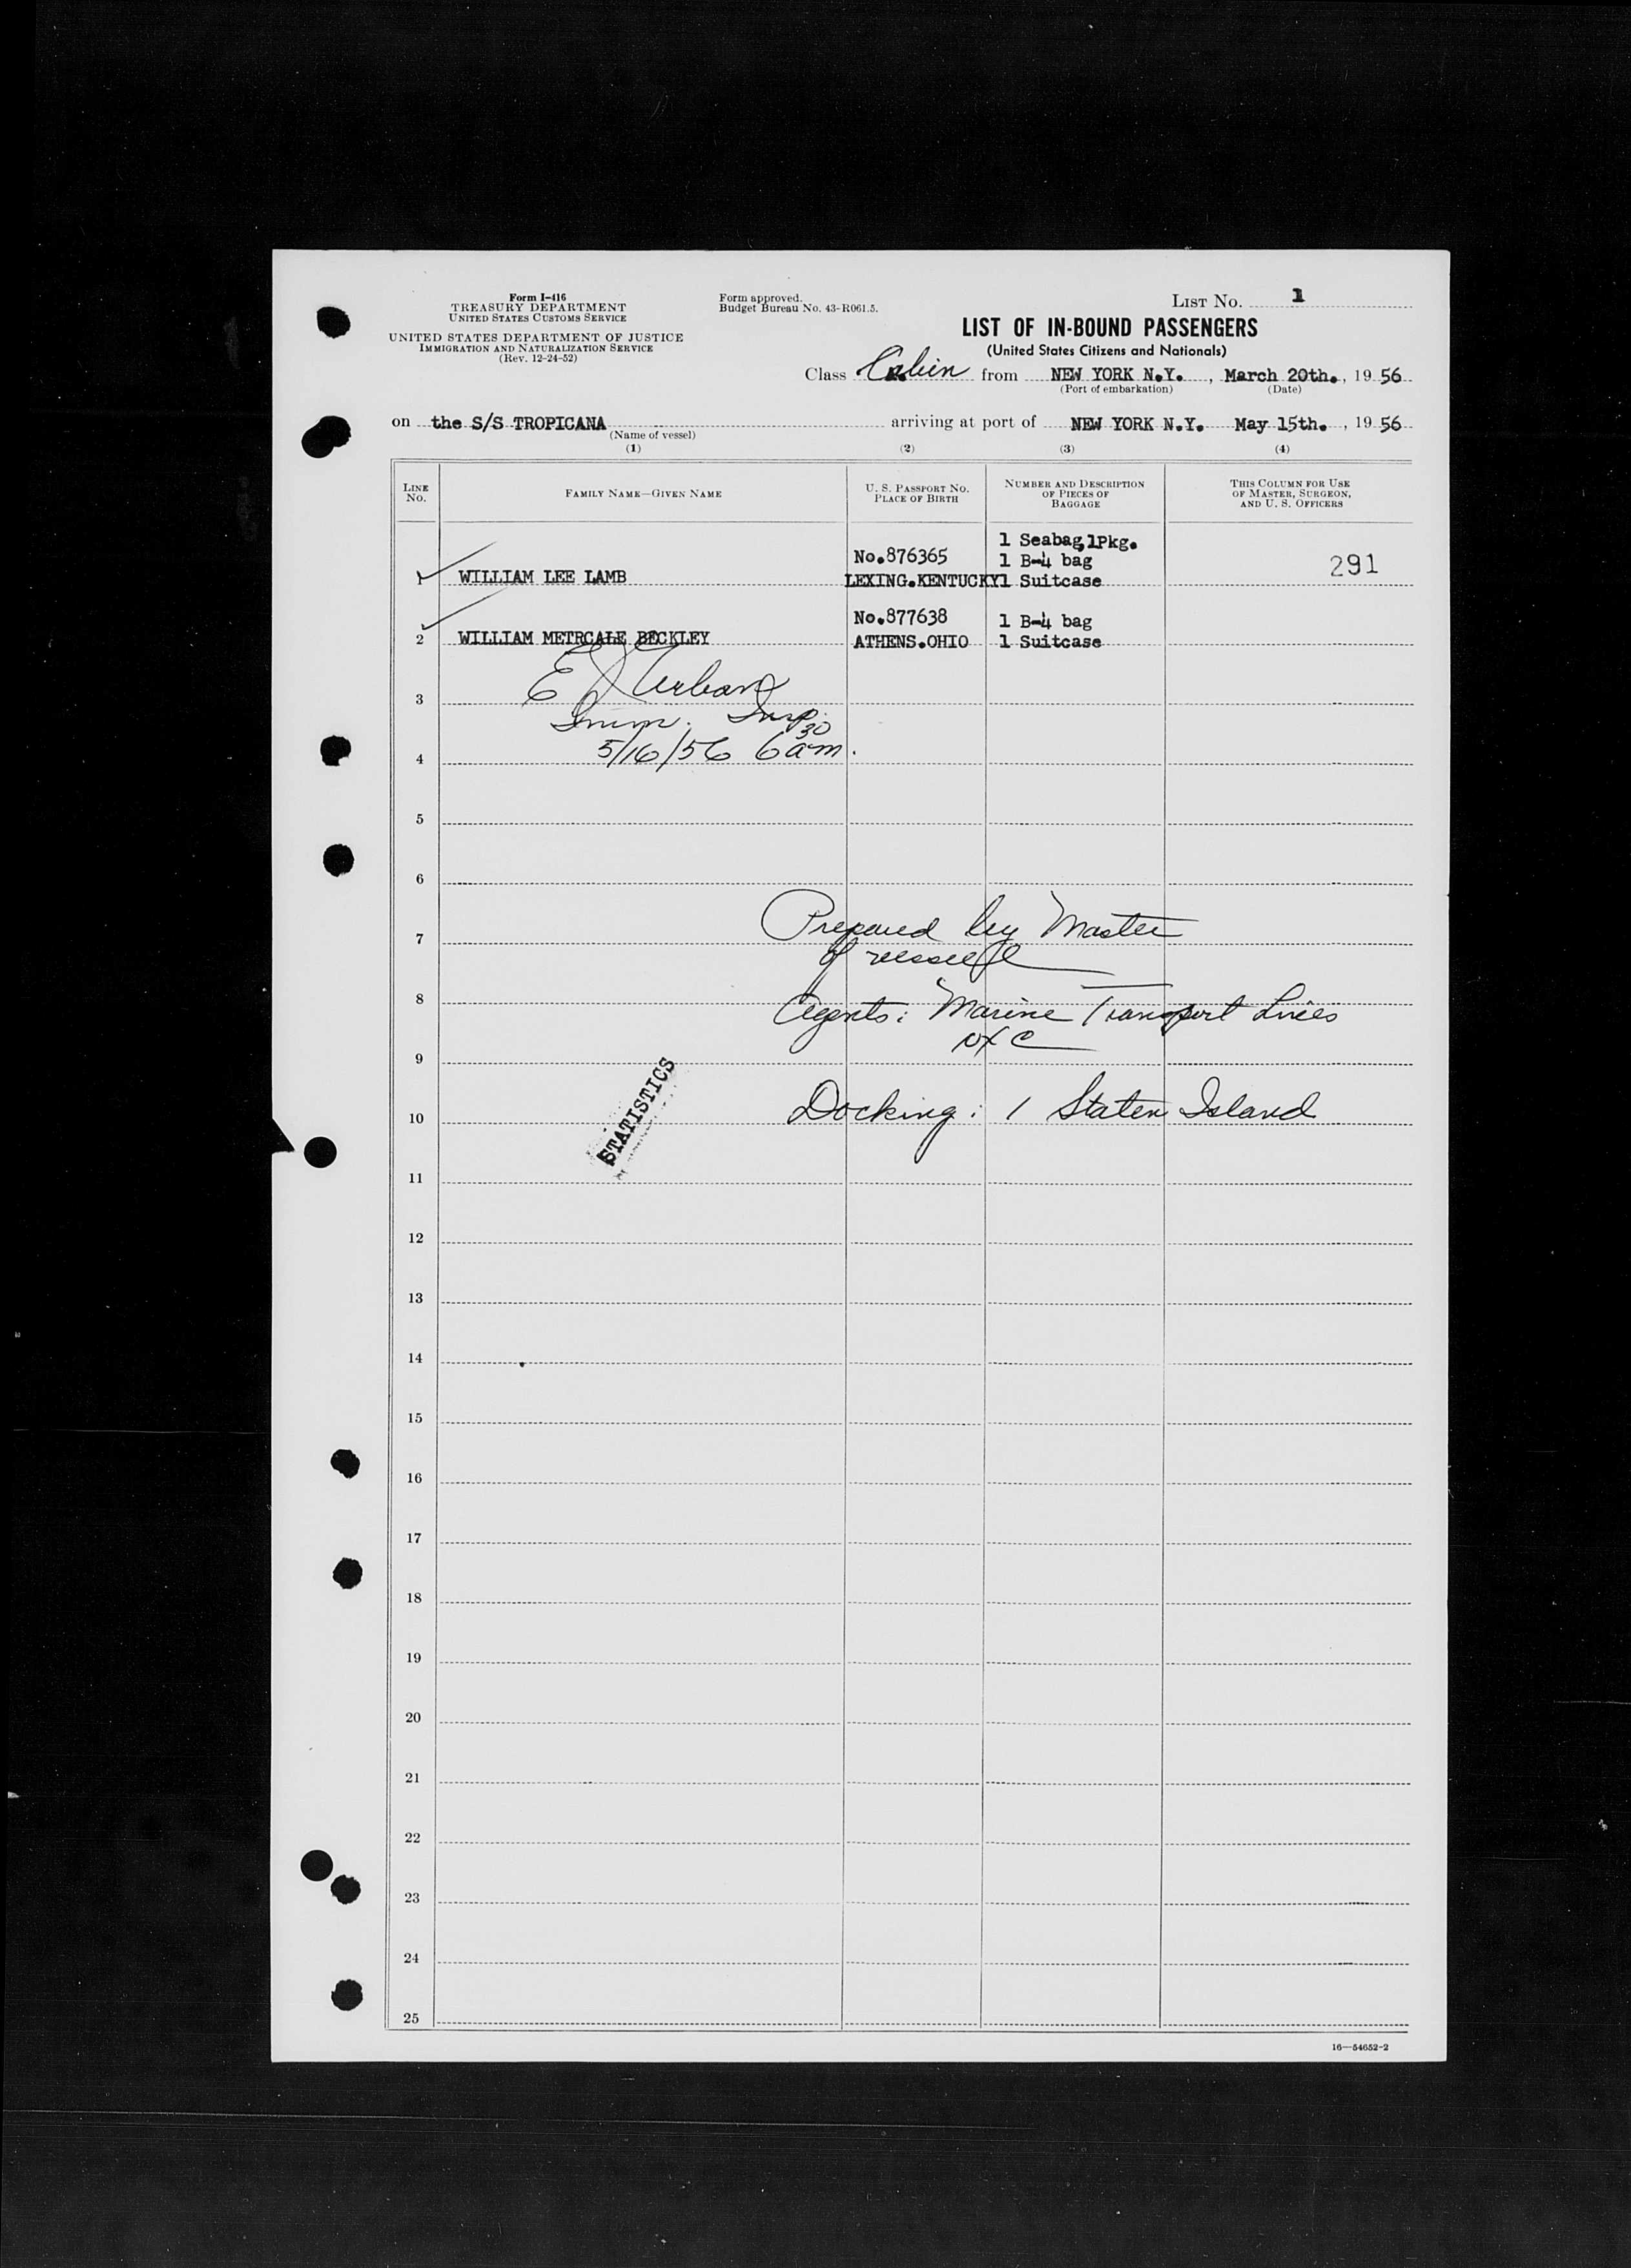 Form I-416
TREASURY DEPARTMENT
UNITED STATES CUSTOMS SERVICE
UNITED STATES DEPARTMENT OF JUSTICE
IMMIGRATION AND NATURALIZATION SERVICE
(Rev. 12-24-52)
Form approved.
Budget Bureau No. 43-R061.5.
LIST No. 1
LIST OF IN-BOUND PASSENGERS
(United States Citizens and Nationals)
Class Cabin from NEW YORK N.Y. , March 20th. , 19 56
(Port of embarkation) (Date)
on the S/S TROPICANA arriving at port of NEW YORK N.Y. May 15th. , 19 56
(Name of vessel)
(1) (2) (3) (4)
LINE No.
FAMILY NAME—GIVEN NAME
U. S. PASSPORT NO.
PLACE OF BIRTH
NUMBER AND DESCRIPTION
OF PIECES OF
BAGGAGE
THIS COLUMN FOR USE
OF MASTER, SURGEON,
AND U. S. OFFICERS
1 Seabag,1Pkg.
No.876365 1 B-4 bag 291
1 WILLIAM LEE LAMB LEXING.KENTUCKY 1 Suitcase
No.877638 1 B-4 bag
2 WILLIAM METRCALE BECKLEY ATHENS.OHIO 1 Suitcase
E J Urban
3
Imm. Insp.
5/16/56 6 30 am.
4
5
6
Prepared by Master
7
of vessel
8
Agents: Marine Transport Lines
9
Docking: 1 Staten Island
10
STATISTICS
11
12
13
14
15
16
17
18
19
20
21
22
23
24
25
16—54652-2